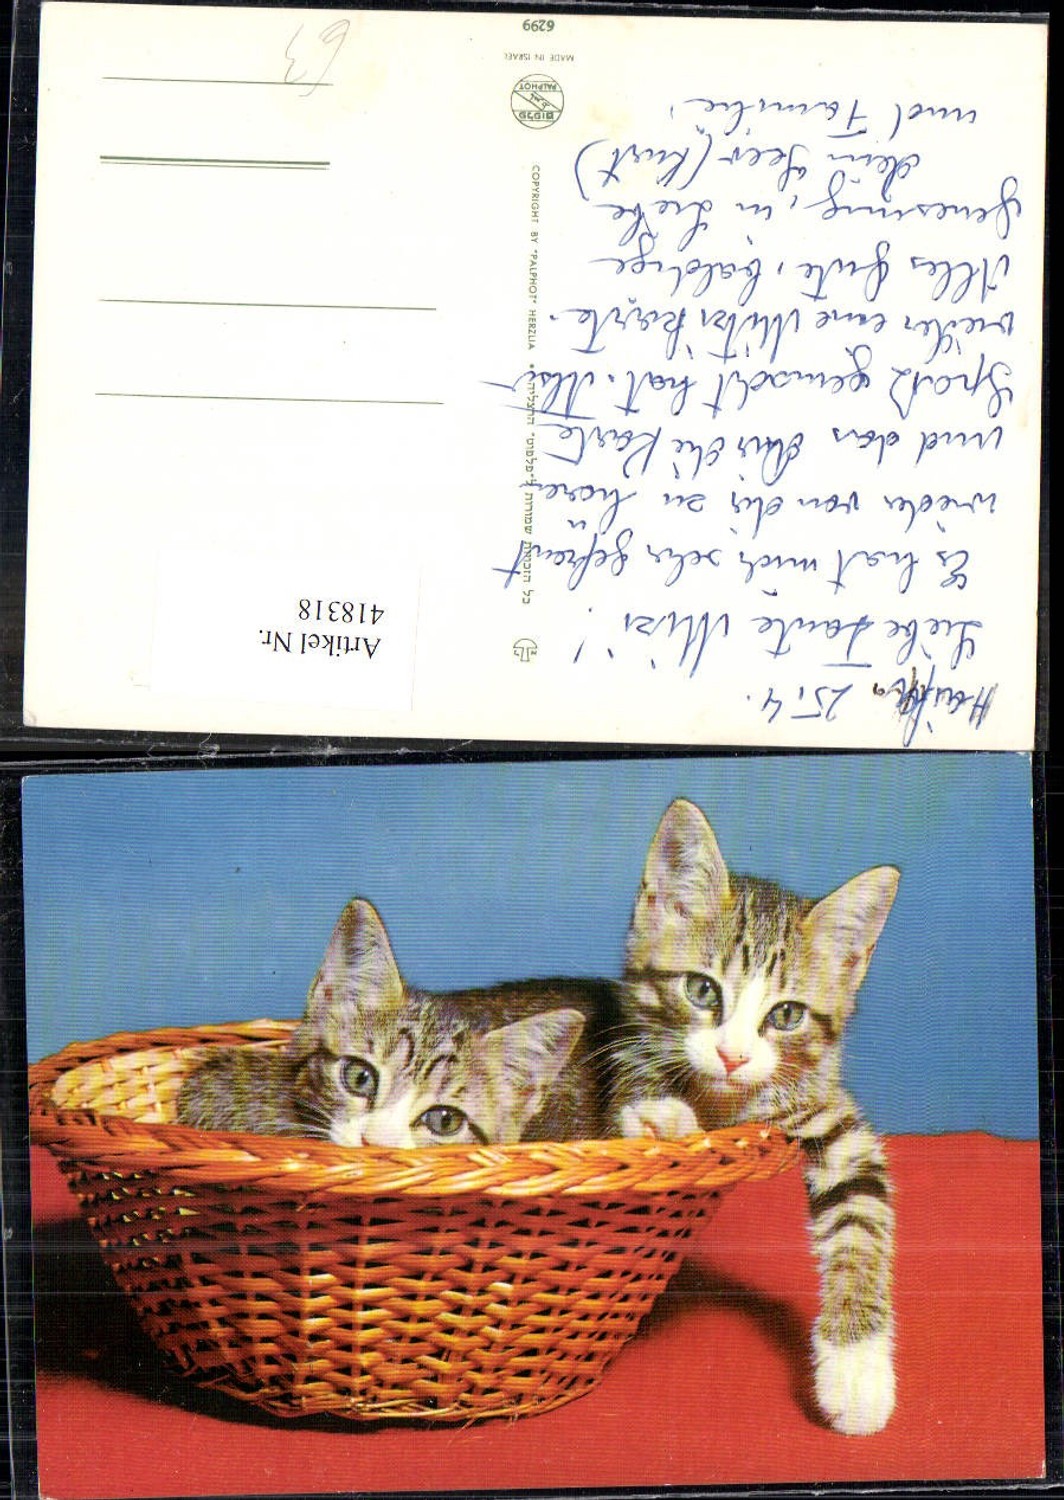 Haifa 25.4.
Liebe Tante Mitzi!
Es hat mich sehr gefreut
wieder von dir zu hören
und das dir die Karte
Spaß gemacht hat. Also
wieder eine Mitzi Karte.
Alles Gute, baldige
Genesung, in Liebe
dein (Kurt)
und Familie.
כל הזכויות שמורות ל"פלפוט" הרצליה • COPYRIGHT BY "PALPHOT" HERZLIA
פלפוט
PALPHOT
MADE IN ISRAEL
6299
63
Artikel Nr.
418318